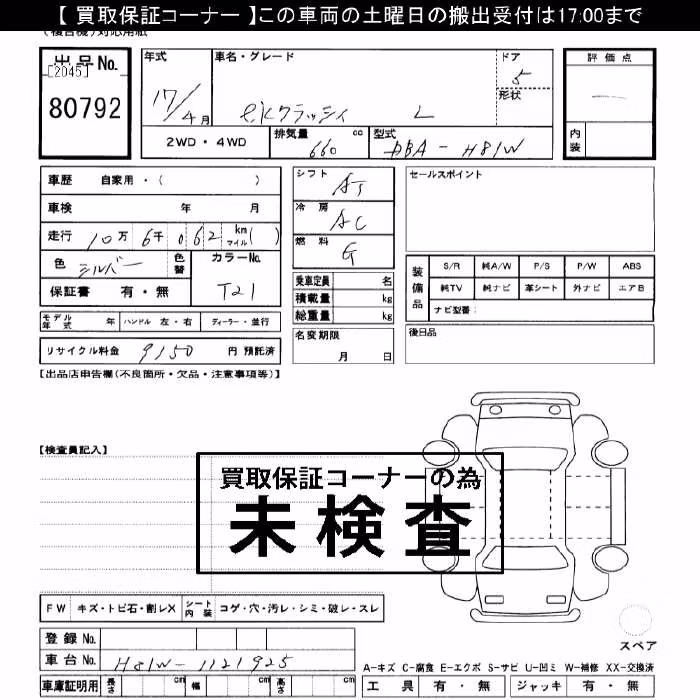 【 買取保証コーナー 】この車両の土曜日の搬出受付は17:00まで
出品No.
[2045]
80792
年式
17/4月
車名・グレード
ekクラッシィ L
ドア
5
形状
評価点
内装
2WD・4WD
排気量 cc
660
型式
DBA-H81W
車歴 自家用・( )
車検 年 月
走行 10万 6千 062 km マイル( )
色 シルバー 色替
カラーNo.
T21
保証書 有・無
モデル年式 年 ハンドル 左・右 ディーラー・並行
リサイクル料金 9150 円 預託済
シフト AT
冷房 AC
燃料 G
乗車定員 名
積載量 kg
総重量 kg
名変期限
月 日
セールスポイント
装備品
S/R 純A/W P/S P/W ABS
純TV 純ナビ 革シート 外ナビ エアB
ナビ型番:
後日品
【出品店申告欄(不良箇所・欠品・注意事項等)】
【検査員記入】
買取保証コーナーの為
未検査
FW キズ・トビ石・割レX シート内装 コゲ・穴・汚レ・シミ・破レ・スレ
登録No.
車台No. H81W-1121925
車庫証明用 長さ cm 幅 cm 高さ cm
スペア
A-キズ C-腐食 E-エクボ S-サビ U-凹ミ W-補修 XX-交換済
工具 有・無 ジャッキ 有・無